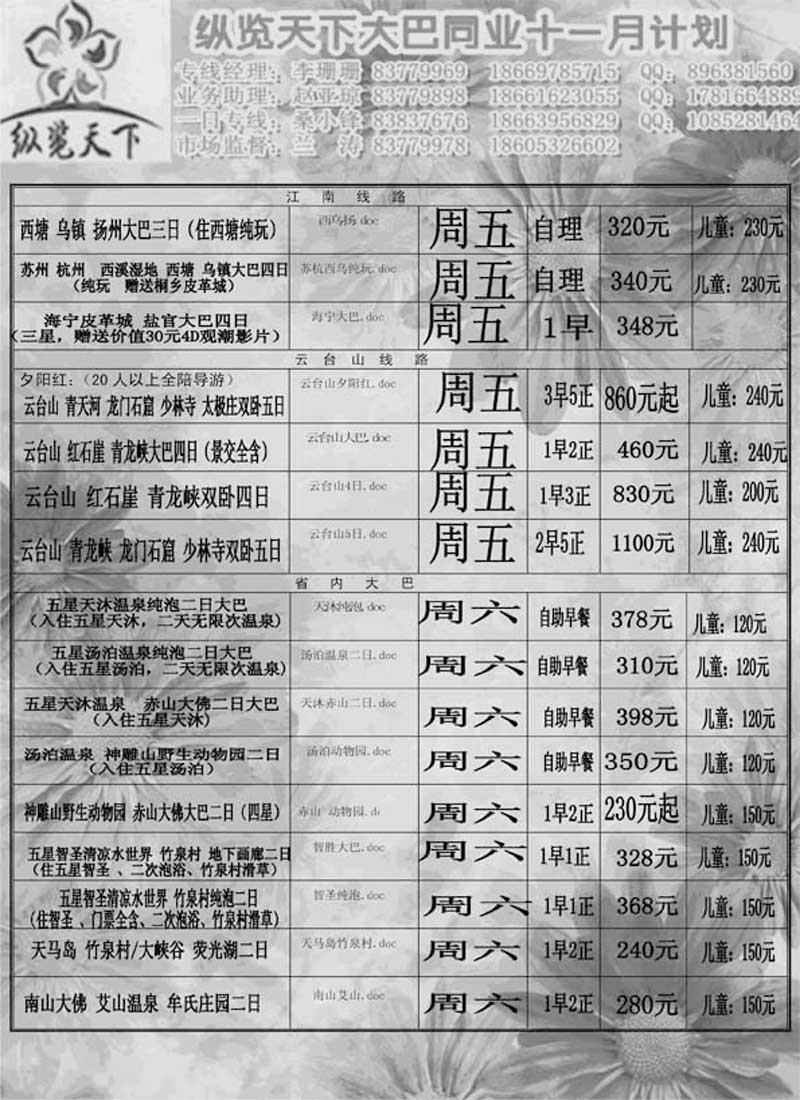 纵览天下
纵览天下大巴同业十一月计划
专线经理：李珊珊 83779969 18669785715 QQ：896381560
业务助理：赵亚琼 83779898 18661623055 QQ：1781664889
二日专线：桑小锋 83837676 18663956829 QQ：1085281464
市场监督：兰 涛 83779978 18605326602
江 南 线 路
西塘 乌镇 扬州大巴三日（住西塘纯玩） 西乌扬.doc 周五 自理 320元 儿童：230元
苏州 杭州 西溪湿地 西塘 乌镇大巴四日
（纯玩 赠送桐乡皮革城） 苏杭西乌纯玩.doc 周五 自理 340元 儿童：230元
海宁皮革城 盐官大巴四日
（三星，赠送价值30元4D观潮影片） 海宁大巴.doc 周五 1早 348元
云 台 山 线 路
夕阳红：（20人以上全陪导游）
云台山 青天河 龙门石窟 少林寺 太极庄双卧五日 云台山夕阳红.doc 周五 3早5正 860元起 儿童：240元
云台山 红石崖 青龙峡大巴四日（景交全含） 云台山大巴.doc 周五 1早2正 460元 儿童：240元
云台山 红石崖 青龙峡双卧四日 云台山4日.doc 周五 1早3正 830元 儿童：200元
云台山 青龙峡 龙门石窟 少林寺双卧五日 云台山5日.doc 周五 2早5正 1100元 儿童：240元
省 内 大 巴
五星天沐温泉纯泡二日大巴
（入住五星天沐，二天无限次温泉） 天沐纯泡.doc 周六 自助早餐 378元 儿童：120元
五星汤泊温泉纯泡二日大巴
（入住五星汤泊，二天无限次温泉） 汤泊温泉二日.doc 周六 自助早餐 310元 儿童：120元
五星天沐温泉 赤山大佛二日大巴
（入住五星天沐） 天沐赤山二日.doc 周六 自助早餐 398元 儿童：120元
汤泊温泉 神雕山野生动物园二日
（入住五星汤泊） 汤泊动物园.doc 周六 自助早餐 350元 儿童：120元
神雕山野生动物园 赤山大佛大巴二日（四星） 赤山 动物园.do 周六 1早2正 230元起 儿童：150元
五星智圣清凉水世界 竹泉村 地下画廊二日
（住五星智圣 、二次泡浴、竹泉村滑草） 智胜大巴.doc 周六 1早1正 328元 儿童：150元
五星智圣清凉水世界 竹泉村纯泡二日
（住智圣 、门票全含、二次泡浴、竹泉村滑草） 智圣纯泡.doc 周六 1早1正 368元 儿童：150元
天马岛 竹泉村/大峡谷 荧光湖二日 天马岛竹泉村.doc 周六 1早2正 240元 儿童：150元
南山大佛 艾山温泉 牟氏庄园二日 南山艾山.doc 周六 1早2正 280元 儿童：150元